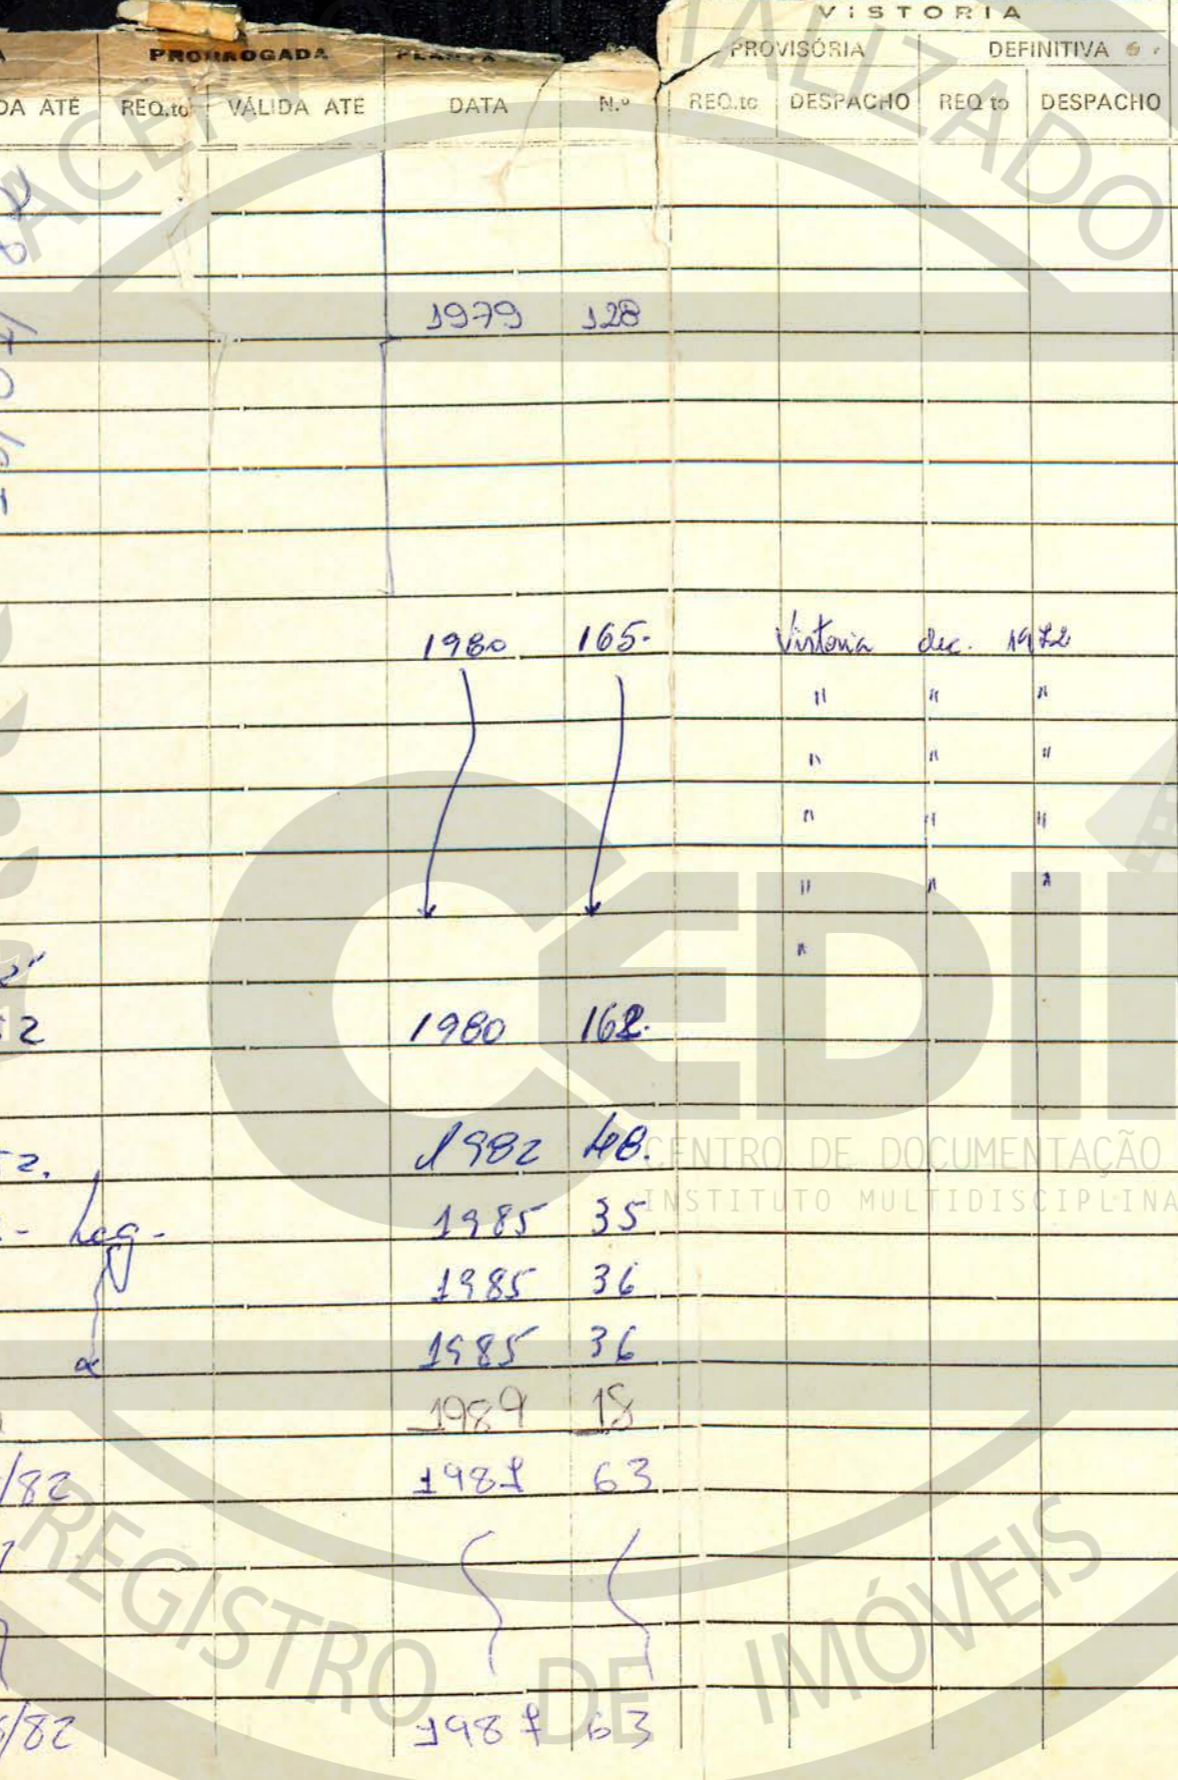 VISTORIA
PRORROGADA PLANTA PROVISÓRIA DEFINITIVA
DA ATÉ REQ.to VÁLIDA ATÉ DATA N.º REQ.to DESPACHO REQ to DESPACHO
1979 128
1980 165. Vistoria dec. 1972
" " "
" " "
" " "
" " "
"
2 1980 162.
2. 1982 48.
Leg- 1985 35
1985 36
1985 36
1989 18
/82 1987 63
/82 1987 63
ACERVO DIGITALIZADO
CEDI
CENTRO DE DOCUMENTAÇÃO
INSTITUTO MULTIDISCIPLINA
REGISTRO DE IMÓVEIS